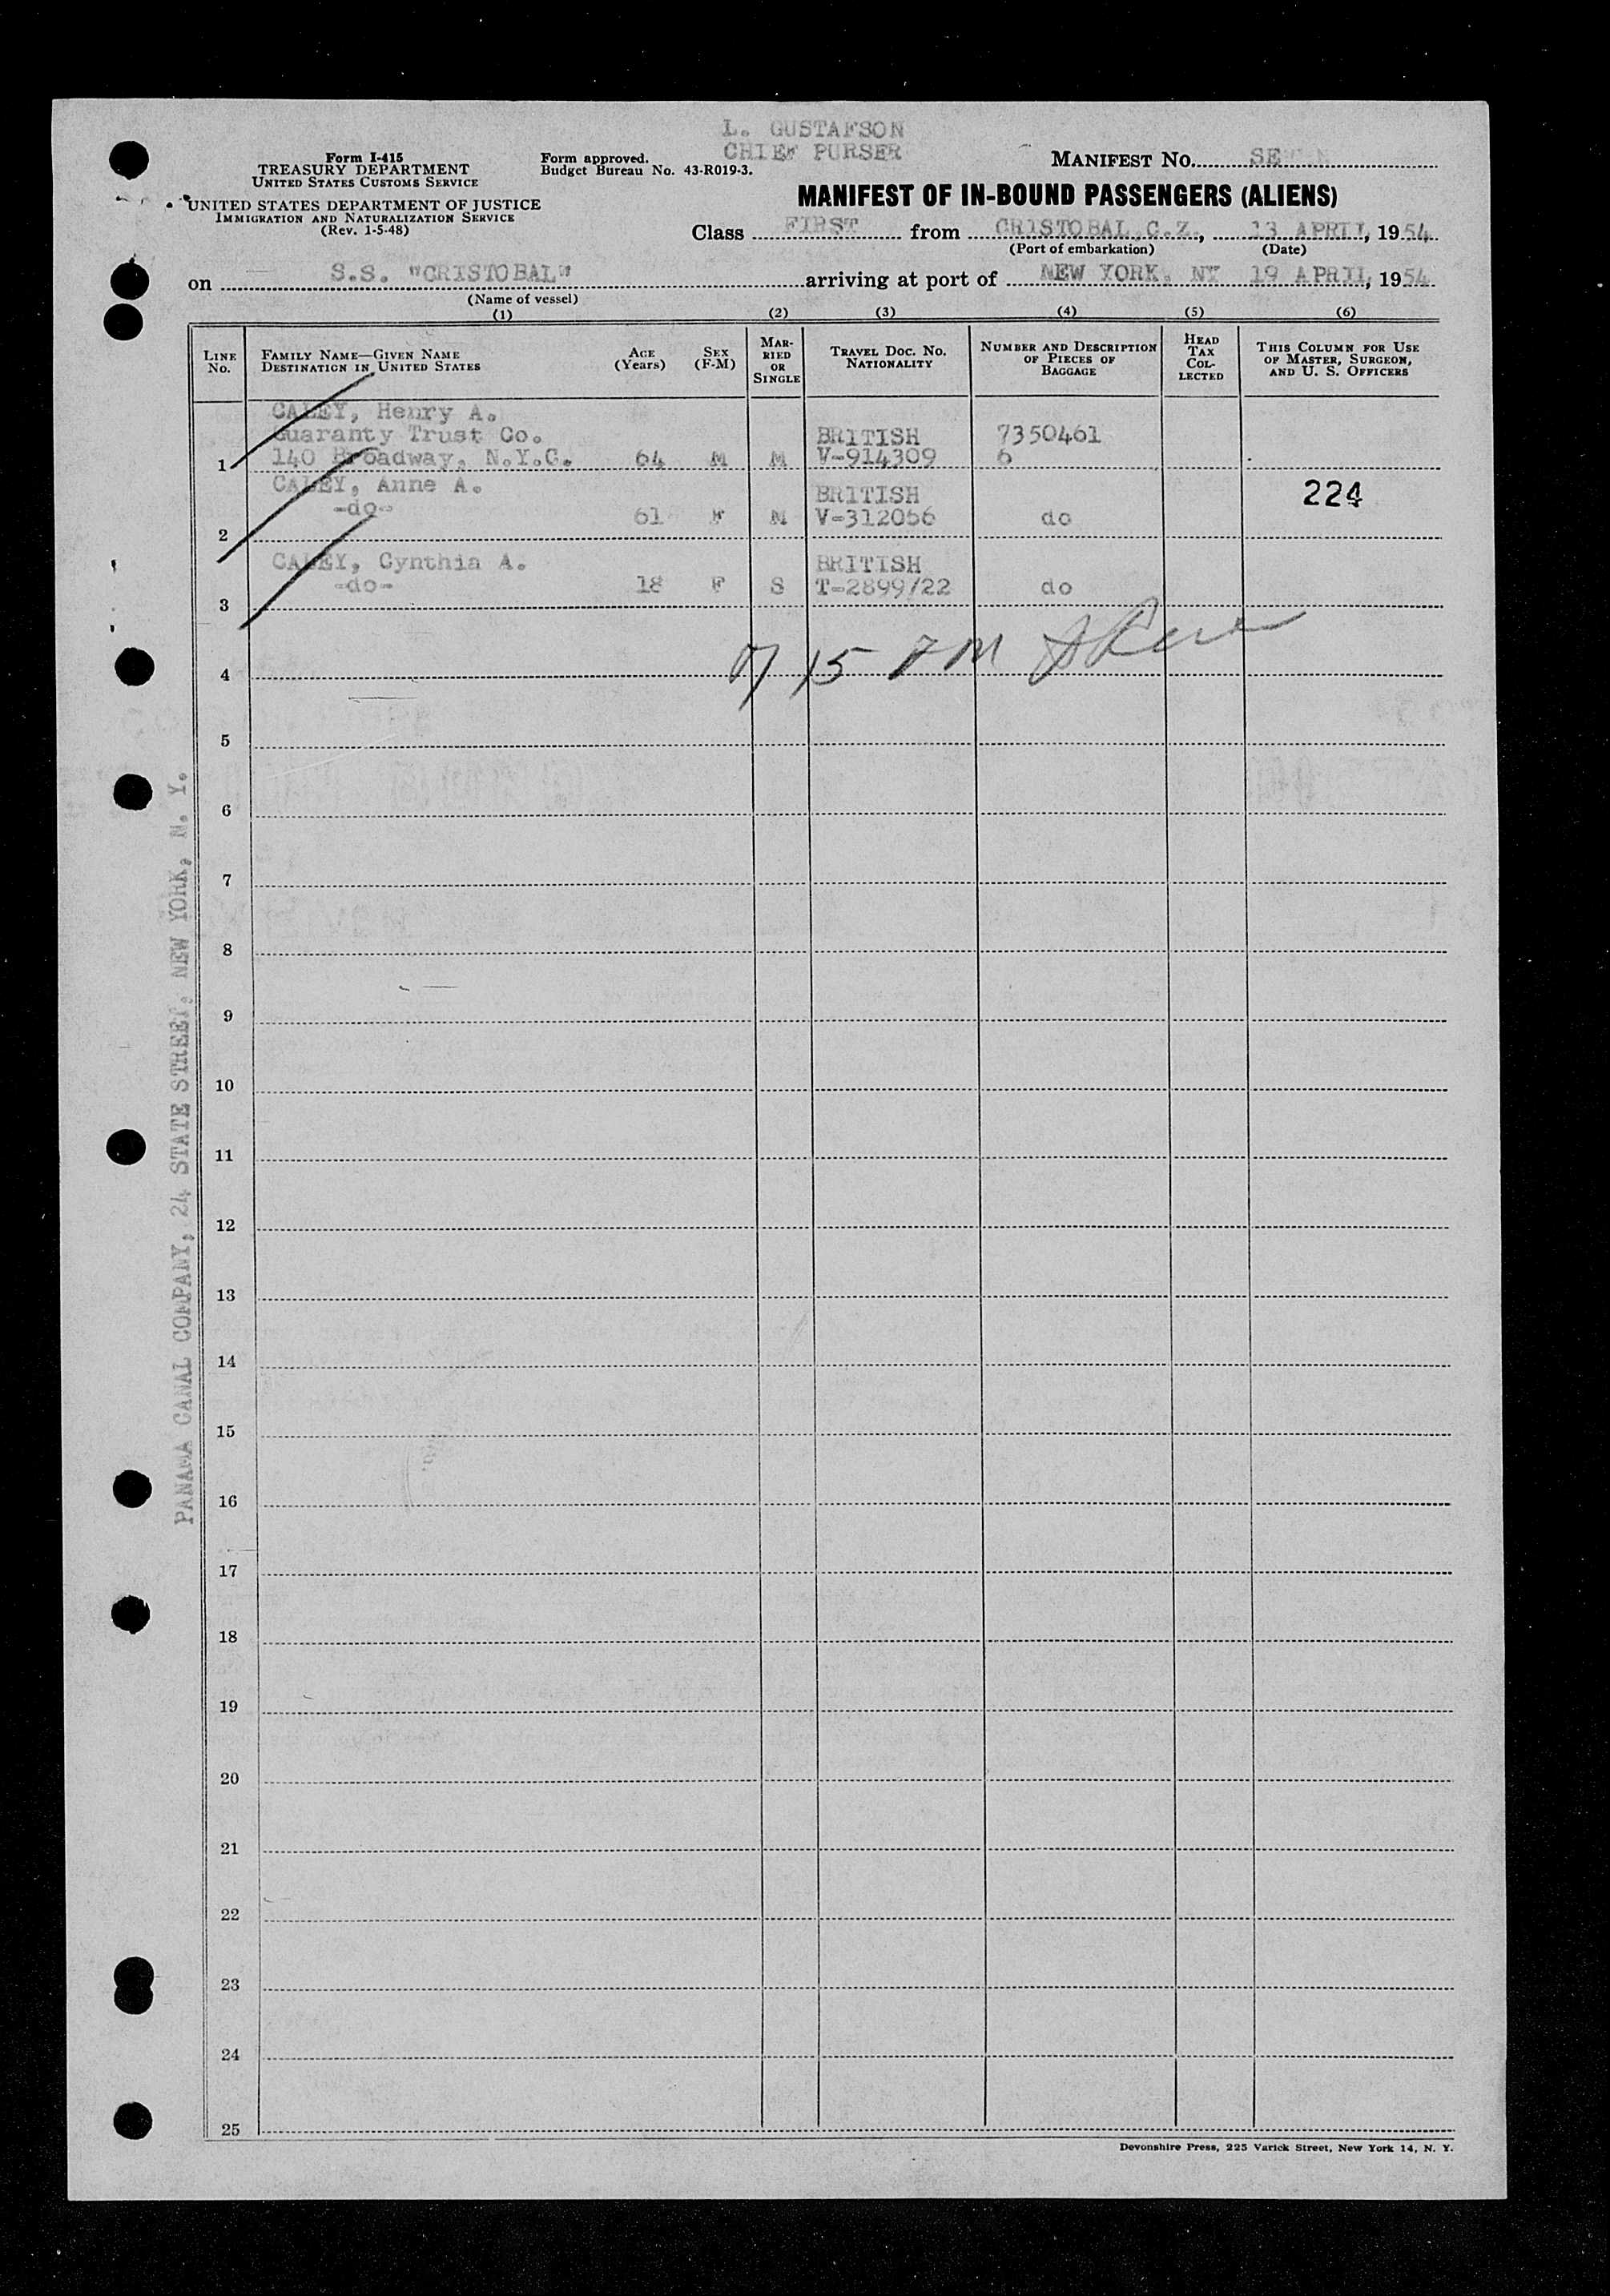 L. GUSTAFSON
CHIEF PURSER
Form I-415
TREASURY DEPARTMENT
UNITED STATES CUSTOMS SERVICE
UNITED STATES DEPARTMENT OF JUSTICE
IMMIGRATION AND NATURALIZATION SERVICE
(Rev. 1-5-48)
Form approved.
Budget Bureau No. 43-R019-3.
MANIFEST No.
MANIFEST OF IN-BOUND PASSENGERS (ALIENS)
Class FIRST from CRISTOBAL, C.Z., 13 APRIL, 1954
(Port of embarkation) (Date)
on S.S. "CRISTOBAL" arriving at port of NEW YORK, NY 19 APRIL, 1954
(Name of vessel)
(1) (2) (3) (4) (5) (6)
LINE No.
FAMILY NAME—GIVEN NAME
DESTINATION IN UNITED STATES
AGE (Years)
SEX (F-M)
MARRIED OR SINGLE
TRAVEL DOC. NO. NATIONALITY
NUMBER AND DESCRIPTION OF PIECES OF BAGGAGE
HEAD TAX COLLECTED
THIS COLUMN FOR USE OF MASTER, SURGEON, AND U. S. OFFICERS
CALEY, Henry A.
Guaranty Trust Co. BRITISH 7350461
1 140 Broadway, N.Y.C. 64 M M V-914309 6
CALEY, Anne A. BRITISH 224
2 -do- 61 F M V-312066 do
CALEY, Cynthia A. BRITISH
3 -do- 18 F S T-2899/22 do
7 15 PM
4
5
6
7
8
9
10
11
12
13
14
15
16
17
18
19
20
21
22
23
24
25
PANAMA CANAL COMPANY, 24 STATE STREET, NEW YORK, N. Y.
Devonshire Press, 225 Varick Street, New York 14, N. Y.